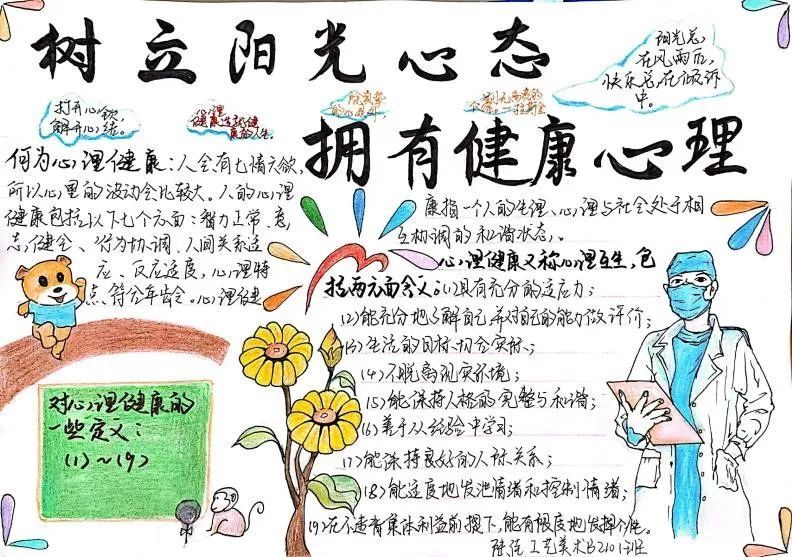 树立阳光心态
阳光总
在风雨后,
快乐总在倾诉
中。
打开心锁
解开心结。
心理
健康造就健
康的人生。
拥有健康心理
何为心理健康:人会有七情六欲,
所以心里的波动会比较大。人的心理
健康包括以下七个方面:智力正常、意
志健全、行为协调、人间关系适
应、反应适度,心理特
点符合年龄。心理健
康指一个人的生理、心理与社会处于相
互协调的和谐状态,。
心理健康又称心理卫生,包
括两方面含义:(1)具有充分的适应力;
(2)能充分地了解自己,并对自己的能力做评价;
(3)生活的目标切合实际;
(4)不脱离现实环境;
(5)能保持人格的完整与和谐;
(6)善于从经验中学习;
(7)能保持良好的人际关系;
(8)能适度地发泄情绪和控制情绪;
(9)在不违背集体利益前提下,能有限度地发挥个性。
对心理健康的
一些定义:
(1)~(9)
工艺美术B2101班